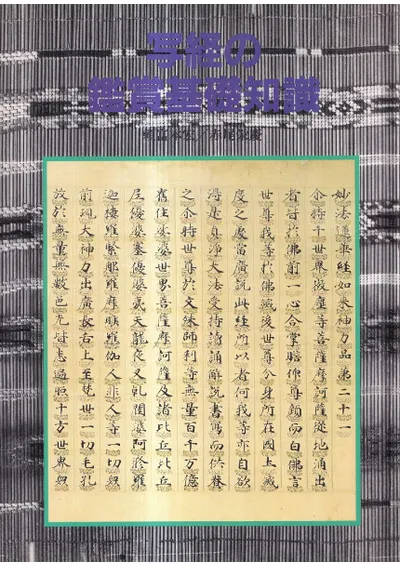 写経の
鑑賞基礎知識
頼富本宏／赤尾栄慶
妙法蓮華經如来神力品第二十一
尒時千世界微塵等菩薩摩訶薩從地涌出
者皆於佛前一心合掌瞻仰尊顏而白佛言
世尊我等於佛滅後世尊分身所在國土滅
度之處當廣說此經所以者何我等亦自欲
得是真淨大法受持讀誦解說書寫而供養
之尒時世尊於文殊師利等無量百千万億
舊住娑婆世界菩薩摩訶薩及諸比丘比丘
尼優婆塞優婆夷天龍夜叉乹闥婆阿脩羅
迦樓羅緊那羅摩睺羅伽人非人等一切衆
前現大神力出廣長舌上至梵世一切毛孔
放於無量無數色光皆悉遍照十方世界衆